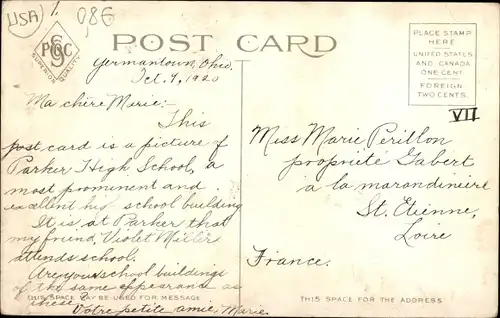 USA
1.
0,86
P9C
SUPERIOR QUALITY
POST CARD
PLACE STAMP
HERE
UNITED STATES
AND CANADA
ONE CENT
FOREIGN
TWO CENTS.
VII
Germantown, Ohio.
Oct. 9, 1920
Ma chère Marie:-
This
post card is a picture of
Parker High School, a
most prominent and
excellent hi school building
It is at Parker that
my friend, Violet Miller
attends school.
Are your school buildings
of the same appearance as
these?
Votre petite amie, Marie.
THIS SPACE MAY BE USED FOR MESSAGE
Miss Marie Perillon
propriete Gabert
a la marandiniere
St. Etienne,
Loire
France.
THIS SPACE FOR THE ADDRESS